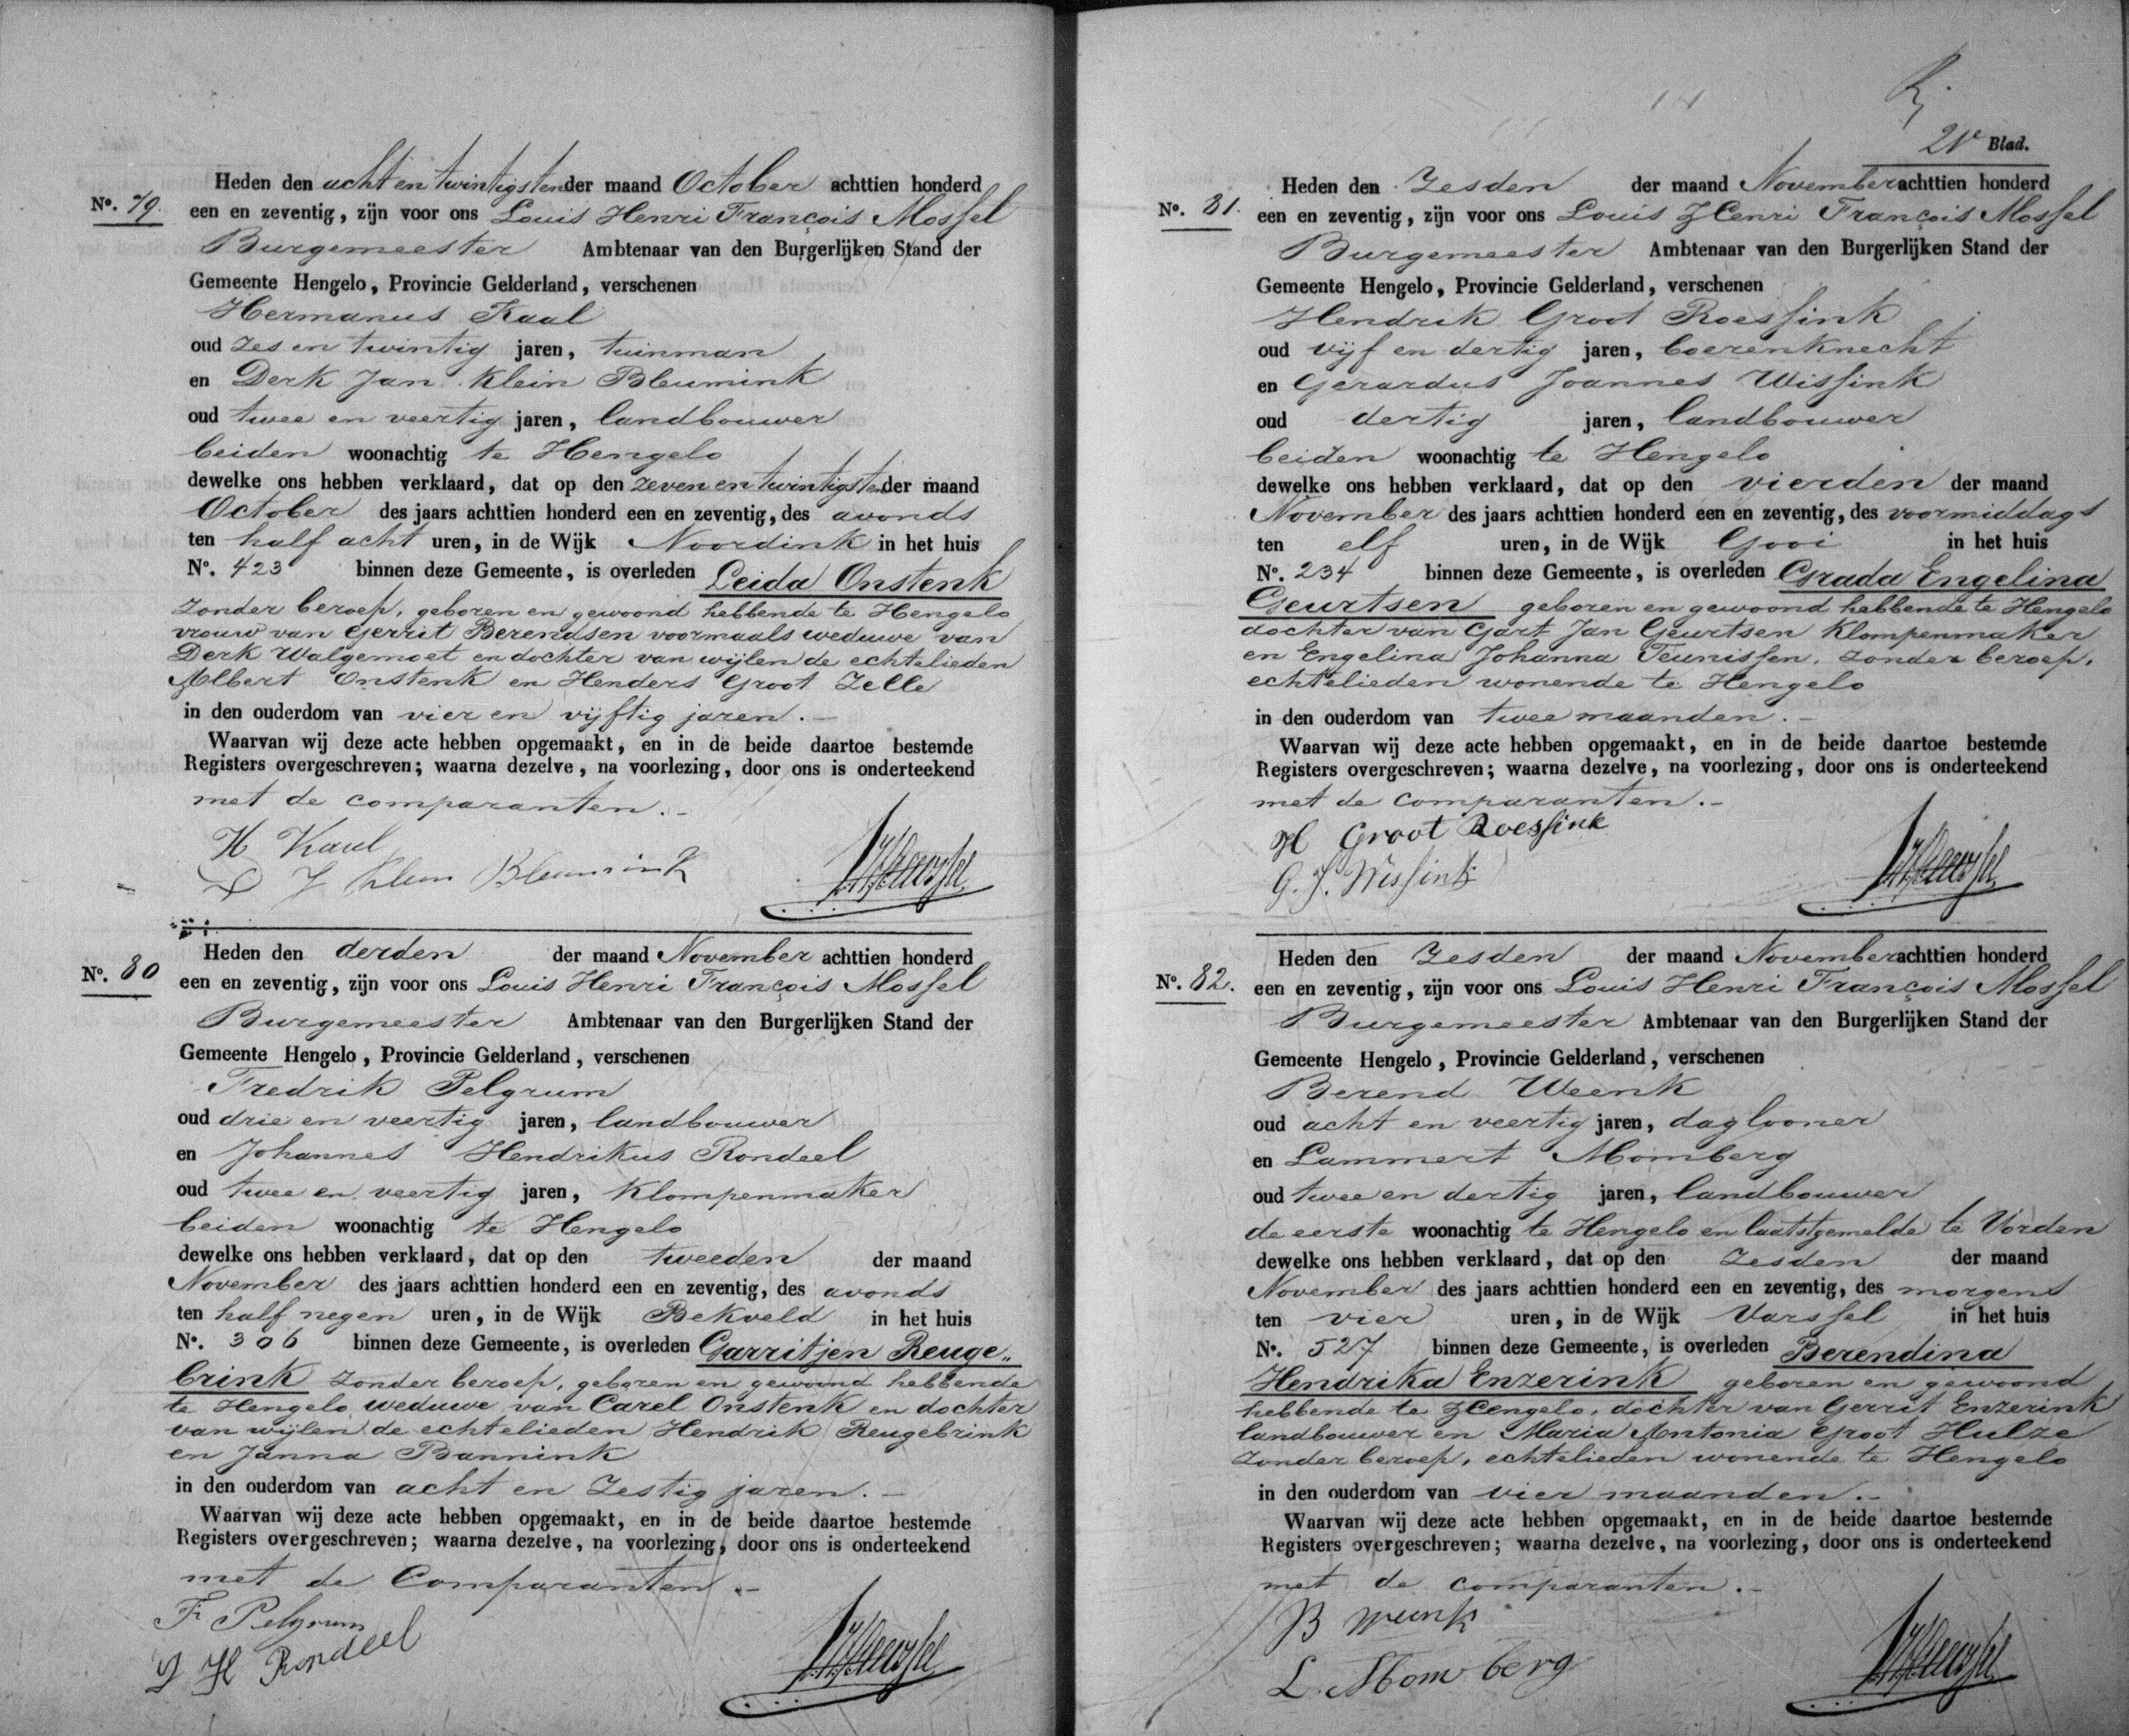 Heden den acht en twintigsten der maand October achttien honderd
No. 79. een en zeventig, zijn voor ons Louis Henri François Mossel
Burgemeester Ambtenaar van den Burgerlijken Stand der
Gemeente Hengelo, Provincie Gelderland, verschenen
Hermanus Kaal
oud zes en twintig jaren, tuinman
en Derk Jan Klein Bleumink
oud twee en veertig jaren, landbouwer
beiden woonachtig te Hengelo
dewelke ons hebben verklaard, dat op den zeven en twintigsten der maand
October des jaars achttien honderd een en zeventig, des avonds
ten half acht uren, in de Wijk Noordink in het huis
No. 423 binnen deze Gemeente, is overleden Leida Onstenk
zonder beroep, geboren en gewoond hebbende te Hengelo
vrouw van Gerrit Berendsen voormaals weduwe van
Derk Walgemoet en dochter van wijlen de echtelieden
Albert Onstenk en Henders Groot Zelle
in den ouderdom van vier en vijftig jaren.
Waarvan wij deze acte hebben opgemaakt, en in de beide daartoe bestemde
Registers overgeschreven; waarna dezelve, na voorlezing, door ons is onderteekend
met de comparanten.
H Kaal
D J Klein Bleumink
Heden den derden der maand November achttien honderd
No. 80 een en zeventig, zijn voor ons Louis Henri François Mossel
Burgemeester Ambtenaar van den Burgerlijken Stand der
Gemeente Hengelo, Provincie Gelderland, verschenen
Fredrik Pelgrum
oud drie en veertig jaren, landbouwer
en Johannes Hendrikus Rondeel
oud twee en veertig jaren, klompenmaker
beiden woonachtig te Hengelo
dewelke ons hebben verklaard, dat op den tweeden der maand
November des jaars achttien honderd een en zeventig, des avonds
ten half negen uren, in de Wijk Bekveld in het huis
No. 306 binnen deze Gemeente, is overleden Garritjen Reuge„
brink zonder beroep, geboren en gewoond hebbende
te Hengelo weduwe van Carel Onstenk en dochter
van wijlen de echtelieden Hendrik Reugebrink
en Janna Bannink
in den ouderdom van acht en zestig jaren.
Waarvan wij deze acte hebben opgemaakt, en in de beide daartoe bestemde
Registers overgeschreven; waarna dezelve, na voorlezing, door ons is onderteekend
met de Comparanten.
F Pelgrum
J H Rondeel
21e Blad.
Heden den Zesden der maand November achttien honderd
No. 81. een en zeventig, zijn voor ons Louis Henri François Mossel
Burgemeester Ambtenaar van den Burgerlijken Stand der
Gemeente Hengelo, Provincie Gelderland, verschenen
Hendrik Groot Roessink
oud vijf en dertig jaren, boerenknecht
en Gerardus Joannes Wissink
oud dertig jaren, landbouwer
beiden woonachtig te Hengelo
dewelke ons hebben verklaard, dat op den vierden der maand
November des jaars achttien honderd een en zeventig, des voormiddags
ten elf uren, in de Wijk Gooi in het huis
No. 234 binnen deze Gemeente, is overleden Grada Engelina
Geurtsen geboren en gewoond hebbende te Hengelo
dochter van Gart Jan Geurtsen klompenmaker
en Engelina Johanna Teunissen, zonder beroep,
echtelieden wonende te Hengelo
in den ouderdom van twee maanden.
Waarvan wij deze acte hebben opgemaakt, en in de beide daartoe bestemde
Registers overgeschreven; waarna dezelve, na voorlezing, door ons is onderteekend
met de comparanten.
H Groot Roessink
G. J. Wissink
Heden den Zesden der maand November achttien honderd
No. 82. een en zeventig, zijn voor ons Louis Henri François Mossel
Burgemeester Ambtenaar van den Burgerlijken Stand der
Gemeente Hengelo, Provincie Gelderland, verschenen
Berend Weenk
oud acht en veertig jaren, daglooner
en Lammert Momberg
oud twee en dertig jaren, landbouwer
de eerste woonachtig te Hengelo en laatstgemelde te Vorden
dewelke ons hebben verklaard, dat op den Zesden der maand
November des jaars achttien honderd een en zeventig, des morgens
ten vier uren, in de Wijk Varssel in het huis
No. 527 binnen deze Gemeente, is overleden Berendina
Hendrika Enzerink geboren en gewoond
hebbende te Hengelo, dochter van Gerrit Enzerink
landbouwer en Maria Antonia Groot Hulze
zonder beroep, echtelieden wonende te Hengelo
in den ouderdom van vier maanden.
Waarvan wij deze acte hebben opgemaakt, en in de beide daartoe bestemde
Registers overgeschreven; waarna dezelve, na voorlezing, door ons is onderteekend
met de comparanten.
B Weenk
L. Momberg